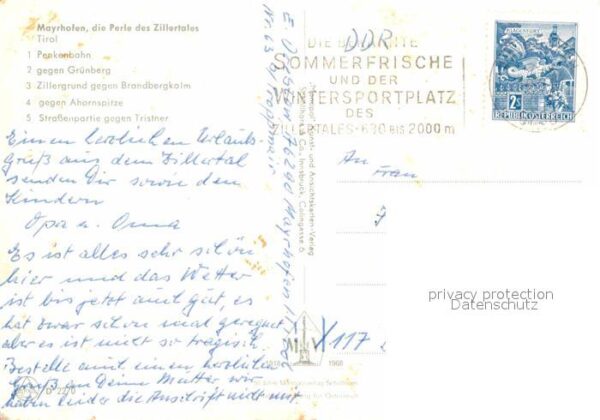 Mayrhofen, die Perle des Zillertales
Tirol
1 Penkenbahn
2 gegen Grünberg
3 Zillergrund gegen Brandbergkolm
4 gegen Ahornspitze
5 Straßenpartie gegen Tristner
Einen herzlichen Urlaubs-
gruß aus dem Zillertal
senden Dir sowie den
Kindern
Opa u. Oma
Es ist alles sehr schön
hier und das Wetter
ist bis jetzt auch gut, es
hat zwar schon mal geregnet
aber es ist nicht so tragisch.
Bestelle auch einen herzlichen
Gruß an Deine Mutter, wir
haben leider die Anschrift nicht mit
6290 Mayrhofen
Kunst- und Ansichtskarten-Verlag
& Co., Innsbruck, Colingasse 6
DDR
DIE BEKANNTE
SOMMERFRISCHE
UND DER
WINTERSPORTPLATZ
DES
ZILLERTALES · 630 BIS 2000 m
KLAGENFURT
2 S
REPUBLIK ÖSTERREICH
An
Frau
117
1918
1968
privacy protection
Datenschutz